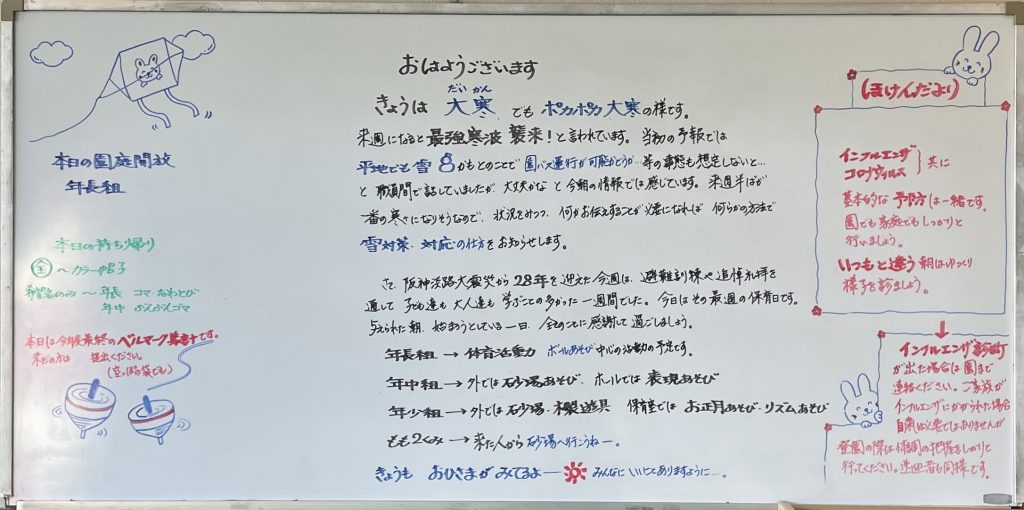 本日の園庭開放
年長組
本日の持ち帰り
全 〜カラー帽子
希望者のみ 〜 年長 コマ なわとび
年中 ぶんぶんゴマ
本日は今年度最終のベルマーク集計です。
まだの方は 提出ください。
(空っぽの袋でも)
おはようございます
だい かん
きょうは 大寒 でも ポカポカ大寒の様です。
来週になると 最強寒波 襲来!と言われています。当初の予報では
平地でも雪 かもとのことで 園バス運行が可能かどうか… 等の事態も想定しないと…
と 職員間で話していましたが 大丈夫かな と今朝の情報では感じています。来週半ばが
一番の寒さになりそうなので、状況をみつつ、何かお伝えすることが必要になれば 何らかの方法で
雪対策、対応の仕方をお知らせします。
さて、阪神淡路大震災から 28年を迎えた今週は、避難訓練や追悼礼拝を
通して 子ども達も 大人達も 学ぶことの多かった 一週間でした。今日はその最週の保育日です。
与えられた朝、始まろうとしている一日、全てのことに感謝して 過ごしましょう。
年長組 → 体育活動 ボールあそび 中心の活動の予定です。
年中組 → 外では 砂場あそび、ホールでは 表現あそび
年少組 → 外では 砂場・木製遊具 保育室では お正月あそび・リズムあそび
もも2くみ → 来た人から 砂場へ行こうねー。
きょうも おひさまが みてるよー みんなに いいことありますように…。
ほけんだより
インフルエンザ
コロナウィルス 共に
基本的な 予防は一緒です。
園でも家庭でもしっかりと
行いましょう。
いつもと違う 朝はゆっくり
様子を診ましょう。
インフルエンザ診断
が出た場合は園まで
連絡ください。ご家族が
インフルエンザにかかられた場合
自粛は必要ではありませんが
登園の際は体調の把握をしっかりと
行ってください。送迎者も同様です。